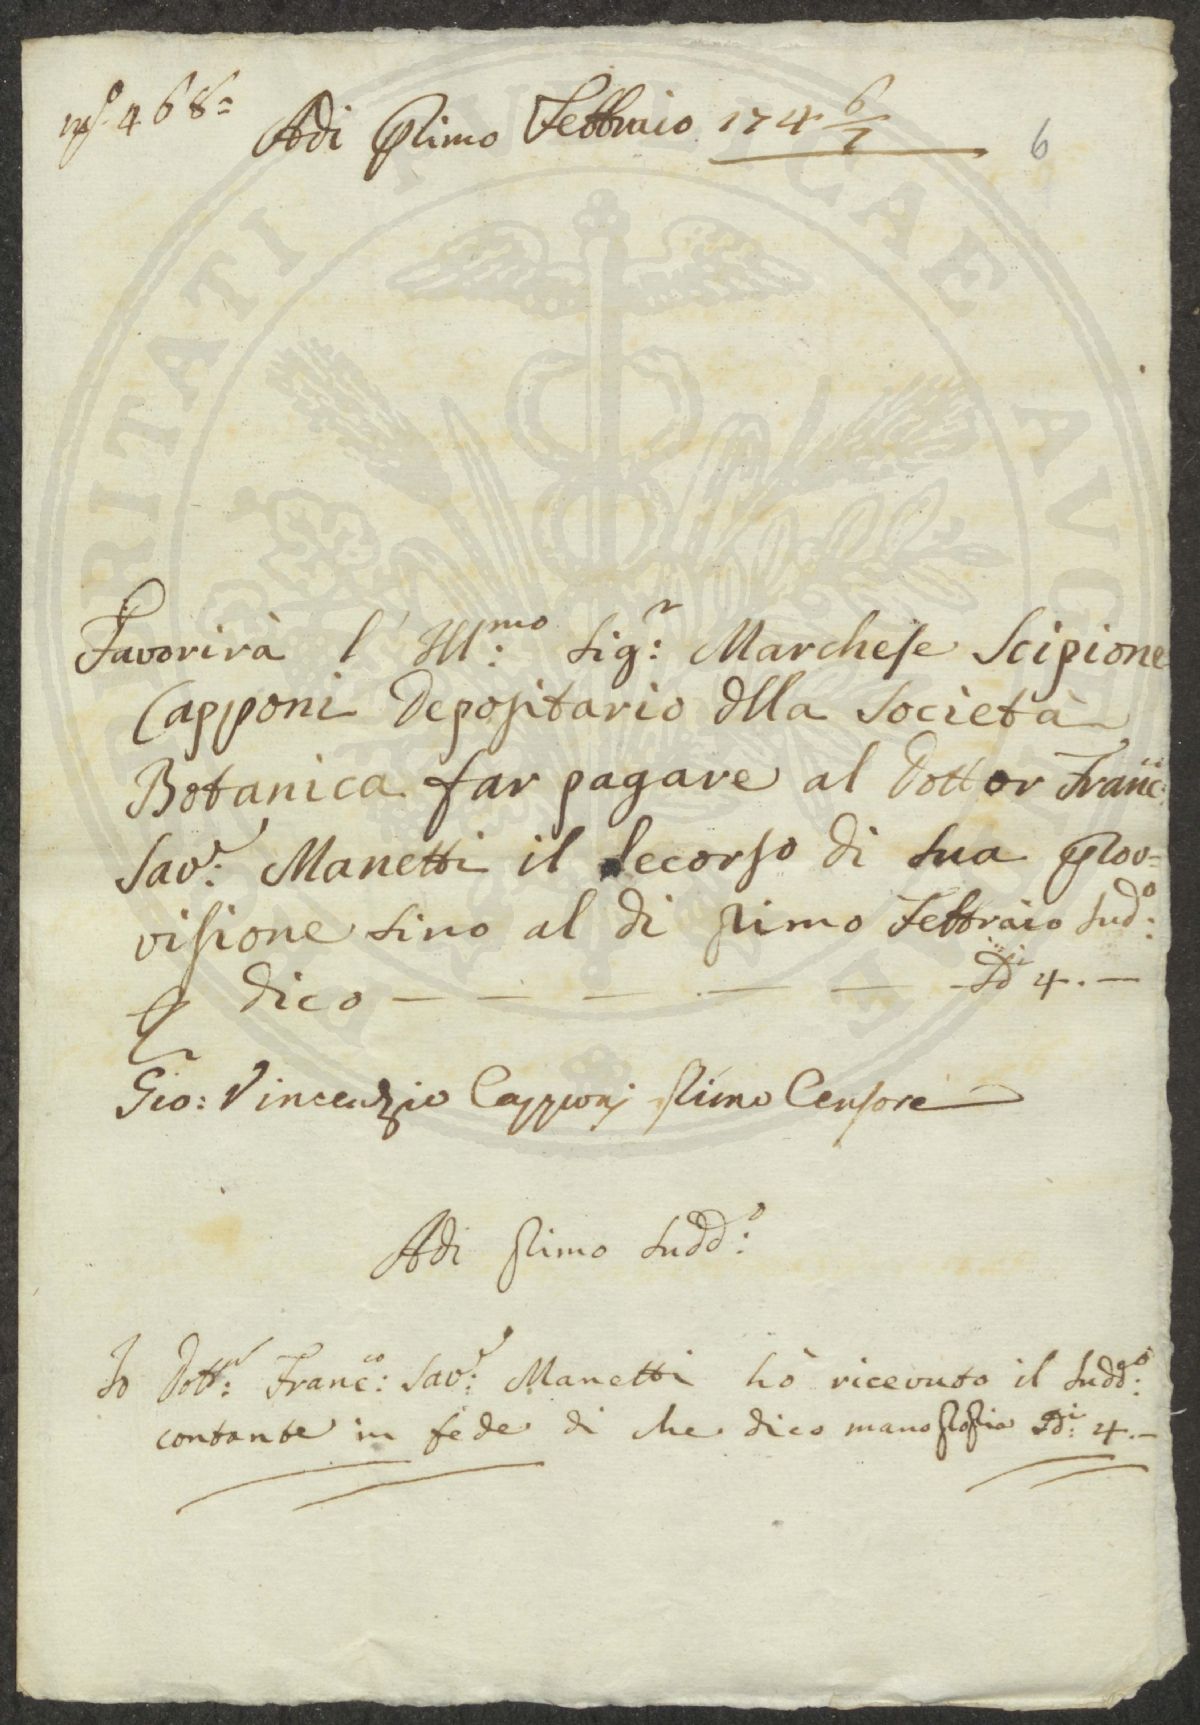 nº 468=
Adi Primo Febbraio 174 6/7
6
Favorirà l' Ill:mo Sig:r Marchese Scipione
Capponi Depositario dlla Società
Botanica far pagare al Dottor Franc:
Sav:r Manetti il decorso di sua prov=
visione sino al di primo Febbraio sud:o
dico — — — — — — Di 4. —
Gio: Vincenzio Capponi primo Censore
Adi primo sudd:o
Io Dott:r Franc:co Sav:r Manetti hò ricevuto il sudd:o
contante in fede di che dico mano propria Di: 4. —